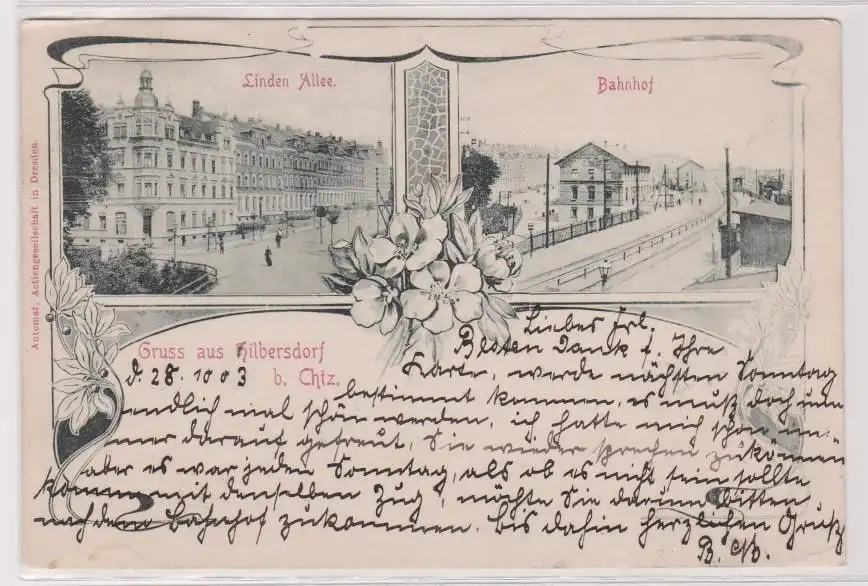 Linden Allee.
Bahnhof
Automat, Actiengesellschaft in Dresden.
Gruss aus Hilbersdorf
b. Chtz.
d. 28. 10 03
Liebes Frl.
Besten Dank f. Ihre
Karte, werde nächsten Sonntag
bestimmt kommen, es muß doch nun
endlich mal schön werden, ich hatte mich schon im=
mer darauf gefreut, Sie wieder sprechen zukönnen
aber es war jeden Sonntag, als ob es nicht sein sollte
komme mit denselben Zug, möchte Sie darum bitten
nach dem Bahnhof zukommen. bis dahin herzlichen Gruß
B.